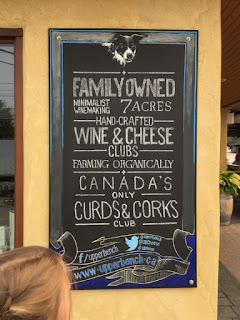 FAMILY OWNED
MINIMALIST WINEMAKING 7 ACRES
HAND-CRAFTED
WINE & CHEESE
CLUBS
FARMING ORGANICALLY
CANADA'S
ONLY
CURDS & CORKS
CLUB
f/upperbench
www.upperbench.ca